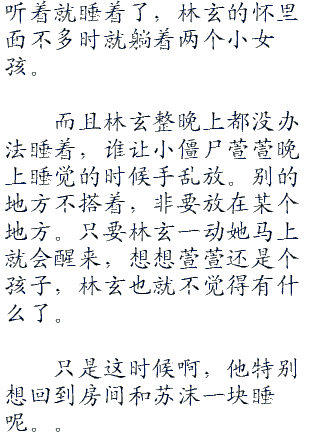 听着就睡着了，林玄的怀里
面不多时就躺着两个小女
孩。
而且林玄整晚上都没办
法睡着，谁让小僵尸萱萱晚
上睡觉的时候手乱放。别的
地方不搭着，非要放在某个
地方。只要林玄一动她马上
就会醒来，想想萱萱还是个
孩子，林玄也就不觉得有什
么了。
只是这时候啊，他特别
想回到房间和苏沫一块睡
呢。。